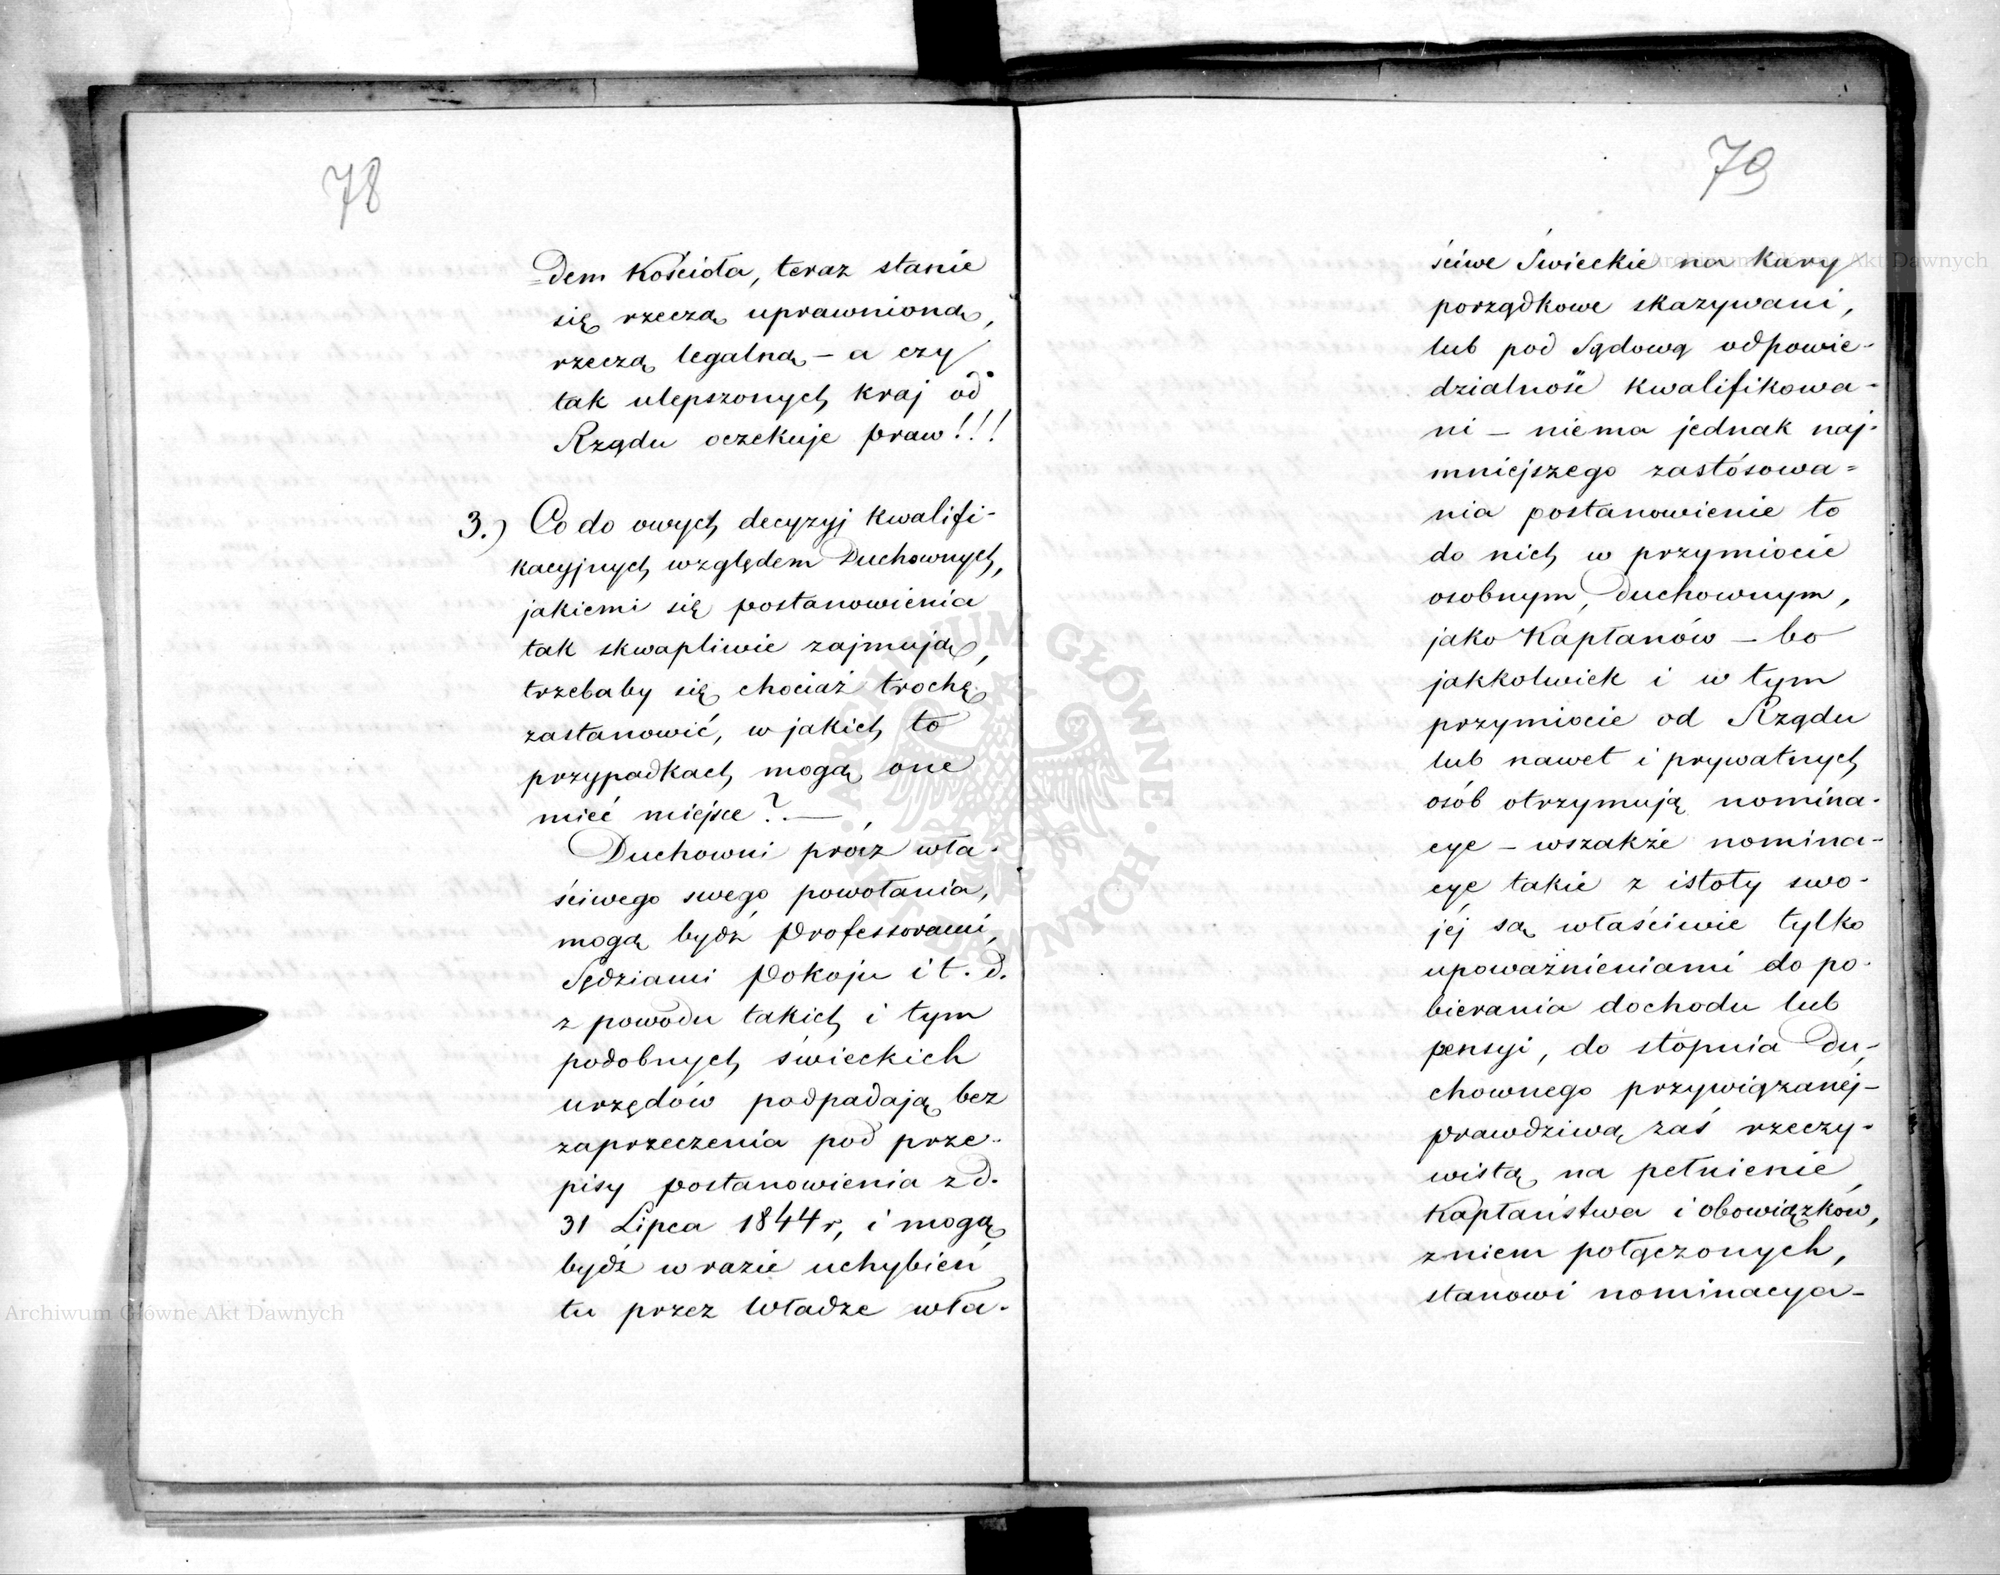 78
dem Kościoła, teraz stanie
się rzeczą uprawnioną,
rzeczą legalną – a czy
tak ulepszonych kraj od
Rządu oczekuje praw!!!
3.) Co do owych decyzyj kwalifi-
kacyjnych względem Duchownych,
jakiemi się postanowienia
tak skwapliwie zajmują,
trzebaby się chociaż trochę
zastanowić, w jakich to
przypadkach mogą one
mieć miejsce? —
Duchowni prócz wła-
ściwego swego powołania,
mogą bydź Professorami,
Sędziami Pokoju i t. d.
z powodu takich i tym
podobnych świeckich
urzędów podpadają bez
zaprzeczenia pod prze-
pisy postanowienia z d.
31 Lipca 1844 r, i mogą
bydź w razie uchybień
tu przez Władze wła-
79
ściwe Świeckie na kary
porządkowe skazywani,
lub pod Sądową odpowie-
dzialność kwalifikowa-
ni – niema jednak naj-
mniejszego zastósowa=
nia postanowienie to
do nich w przymiocie
osobnym, duchownym,
jako Kapłanów – bo
jakkolwiek i w tym
przymiocie od Rządu
lub nawet i prywatnych
osób otrzymują nomina-
cye – wszakże nomina-
cye takie z istoty swo-
jéj są właściwie tylko
upoważnieniami do po-
bierania dochodu lub
pensyi, do stopnia Du-
chownego przywiązanéj –
prawdziwą zaś rzeczy-
wistą na pełnienie
Kapłaństwa i obowiązków,
z niem połączonych,
stanowi nominacya –
Archiwum Główne Akt Dawnych
Archiwum Główne Akt Dawnych
ARCHIWUM GŁÓWNE AKT DAWNYCH